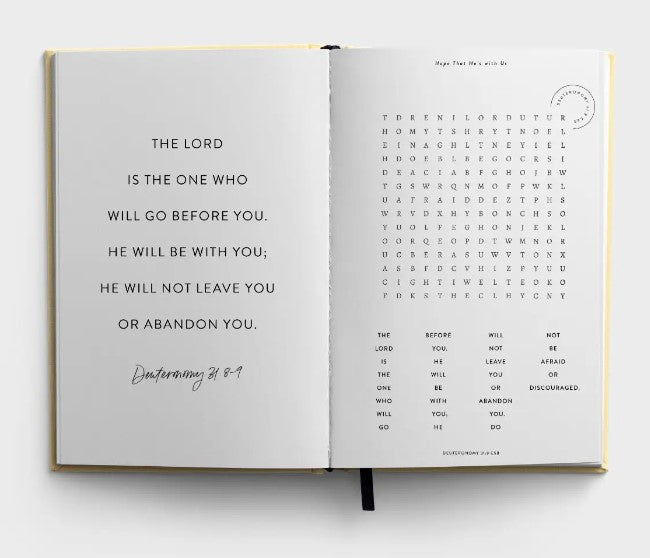 THE LORD
IS THE ONE WHO
WILL GO BEFORE YOU.
HE WILL BE WITH YOU;
HE WILL NOT LEAVE YOU
OR ABANDON YOU.
Deuteronomy 31 8-9
Hope That He's with Us
DEUTERONOMY
T D R E N I L O R D U T U R
H O M Y T S H R Y T N O E L
E I N A G H L T N E Y I E L
H D O E B L B E G O C R S I
D E A C I A B F G H O J B W
T G S W R Q N M O F P W K L
U A F R A I D D E Z T P H S
W R V D X H Y B O N C H S O
Y U O L F E G H O N J E K L
O O R Q E O P D T W M N O R
U C B E R A S U W V T O N X
A S B F D C V H I Z P Y U U
C I G H T I W E L T E O K O
F D K S T H E C L H Y C N Y
THE BEFORE WILL NOT
LORD YOU. NOT BE
IS HE LEAVE AFRAID
THE WILL YOU OR
ONE BE OR DISCOURAGED.
WHO WITH ABANDON
WILL YOU; YOU.
GO HE DO
DEUTERONOMY CSB